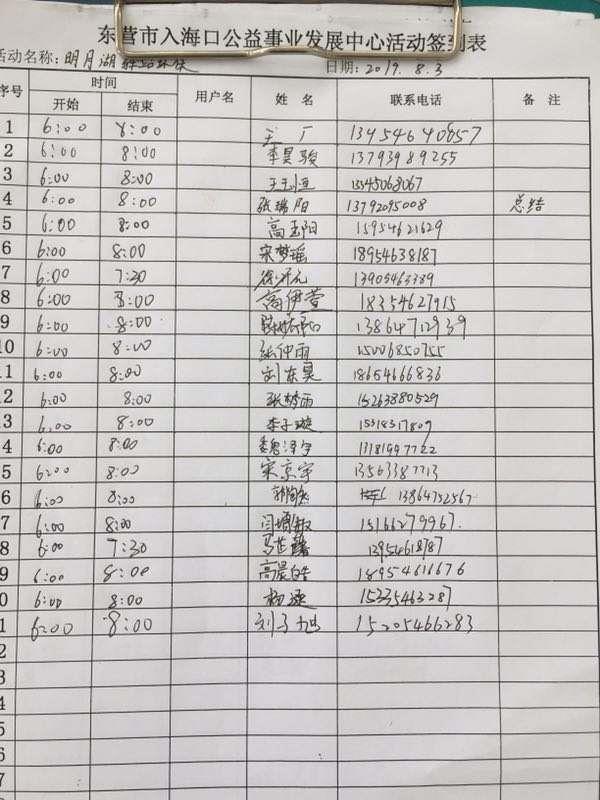 东营市入海口公益事业发展中心活动签到表
活动名称：明月湖 日期：2019.8.3
序号 时间 用户名 姓名 联系电话 备注
开始 结束
1 6:00 8:00 13454640857
2 6:00 8:00 李昊骏 13793989255
3 6:00 8:00 王玉恒 13345068067
4 6:00 8:00 张瑞阳 13792095008 总结
5 6:00 8:00 高玉阳 15954621629
6 6:00 8:00 宋梦瑶 18954638187
7 6:00 7:30 13905463389
8 6:00 8:00 高伊萱 18354627915
9 6:00 8:00 13864712939
10 6:00 8:00 张仲雨 15006850755
11 6:00 8:00 刘东昊 18654666836
2 6:00 8:00 张梦雨 15263880529
3 6:00 8:00 李子璇 15318317809
4 6:00 8:00 魏泽宇 13181997722
5 6:00 8:00 宋京宇 13563387713
6 6:00 8:00 13864732567
7 6:00 8:00 15166279967
8 6:00 7:30 13954618787
9 6:00 8:00 高晨皓 18954616676
0 6:00 8:00 15235463287
1 6:00 8:00 刘子旭 15205466283
2
3
4
5
6
7